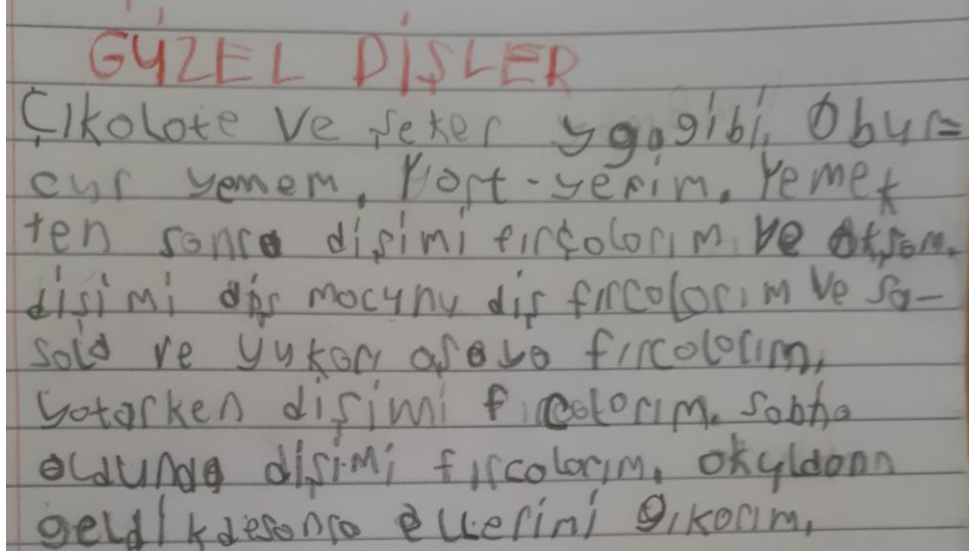 GÜZEL DİŞLER
Çıkolote ve şeker yga gibi, Obur=
cur yemem. Yort-yerim. Yemek
ten sonra dişimi fırçolorım ve akşam.
dişimi diş mocunu diş fırcolorım ve sa-
sola ve yukarı aşava fırcolorım,
yotarken dişimi fırcolorım. sobha
oldunda dişimi fırcolorım, okuldonn
geldikdesonra ellerimi yıkorım,